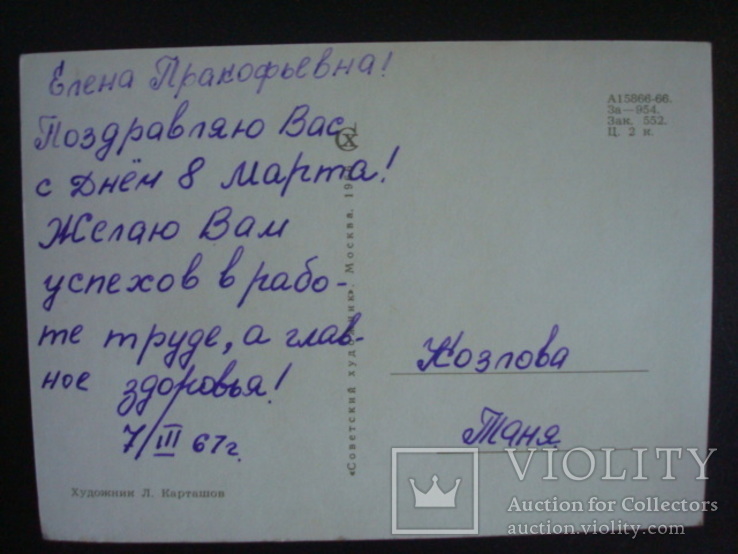 Елена Пракофьевна!
Поздравляю Вас
с Днём 8 Марта!
Желаю Вам
успехов в рабо-
те труде, а глав-
ное здоровья!
7/III 67г.
Художник Л. Карташов
«Советский художник». Москва.
СХ
А15866-66.
За—954.
Зак. 552.
Ц. 2 к.
Козлова
Таня
VIOLITY
Auction for Collectors
auction.violity.com